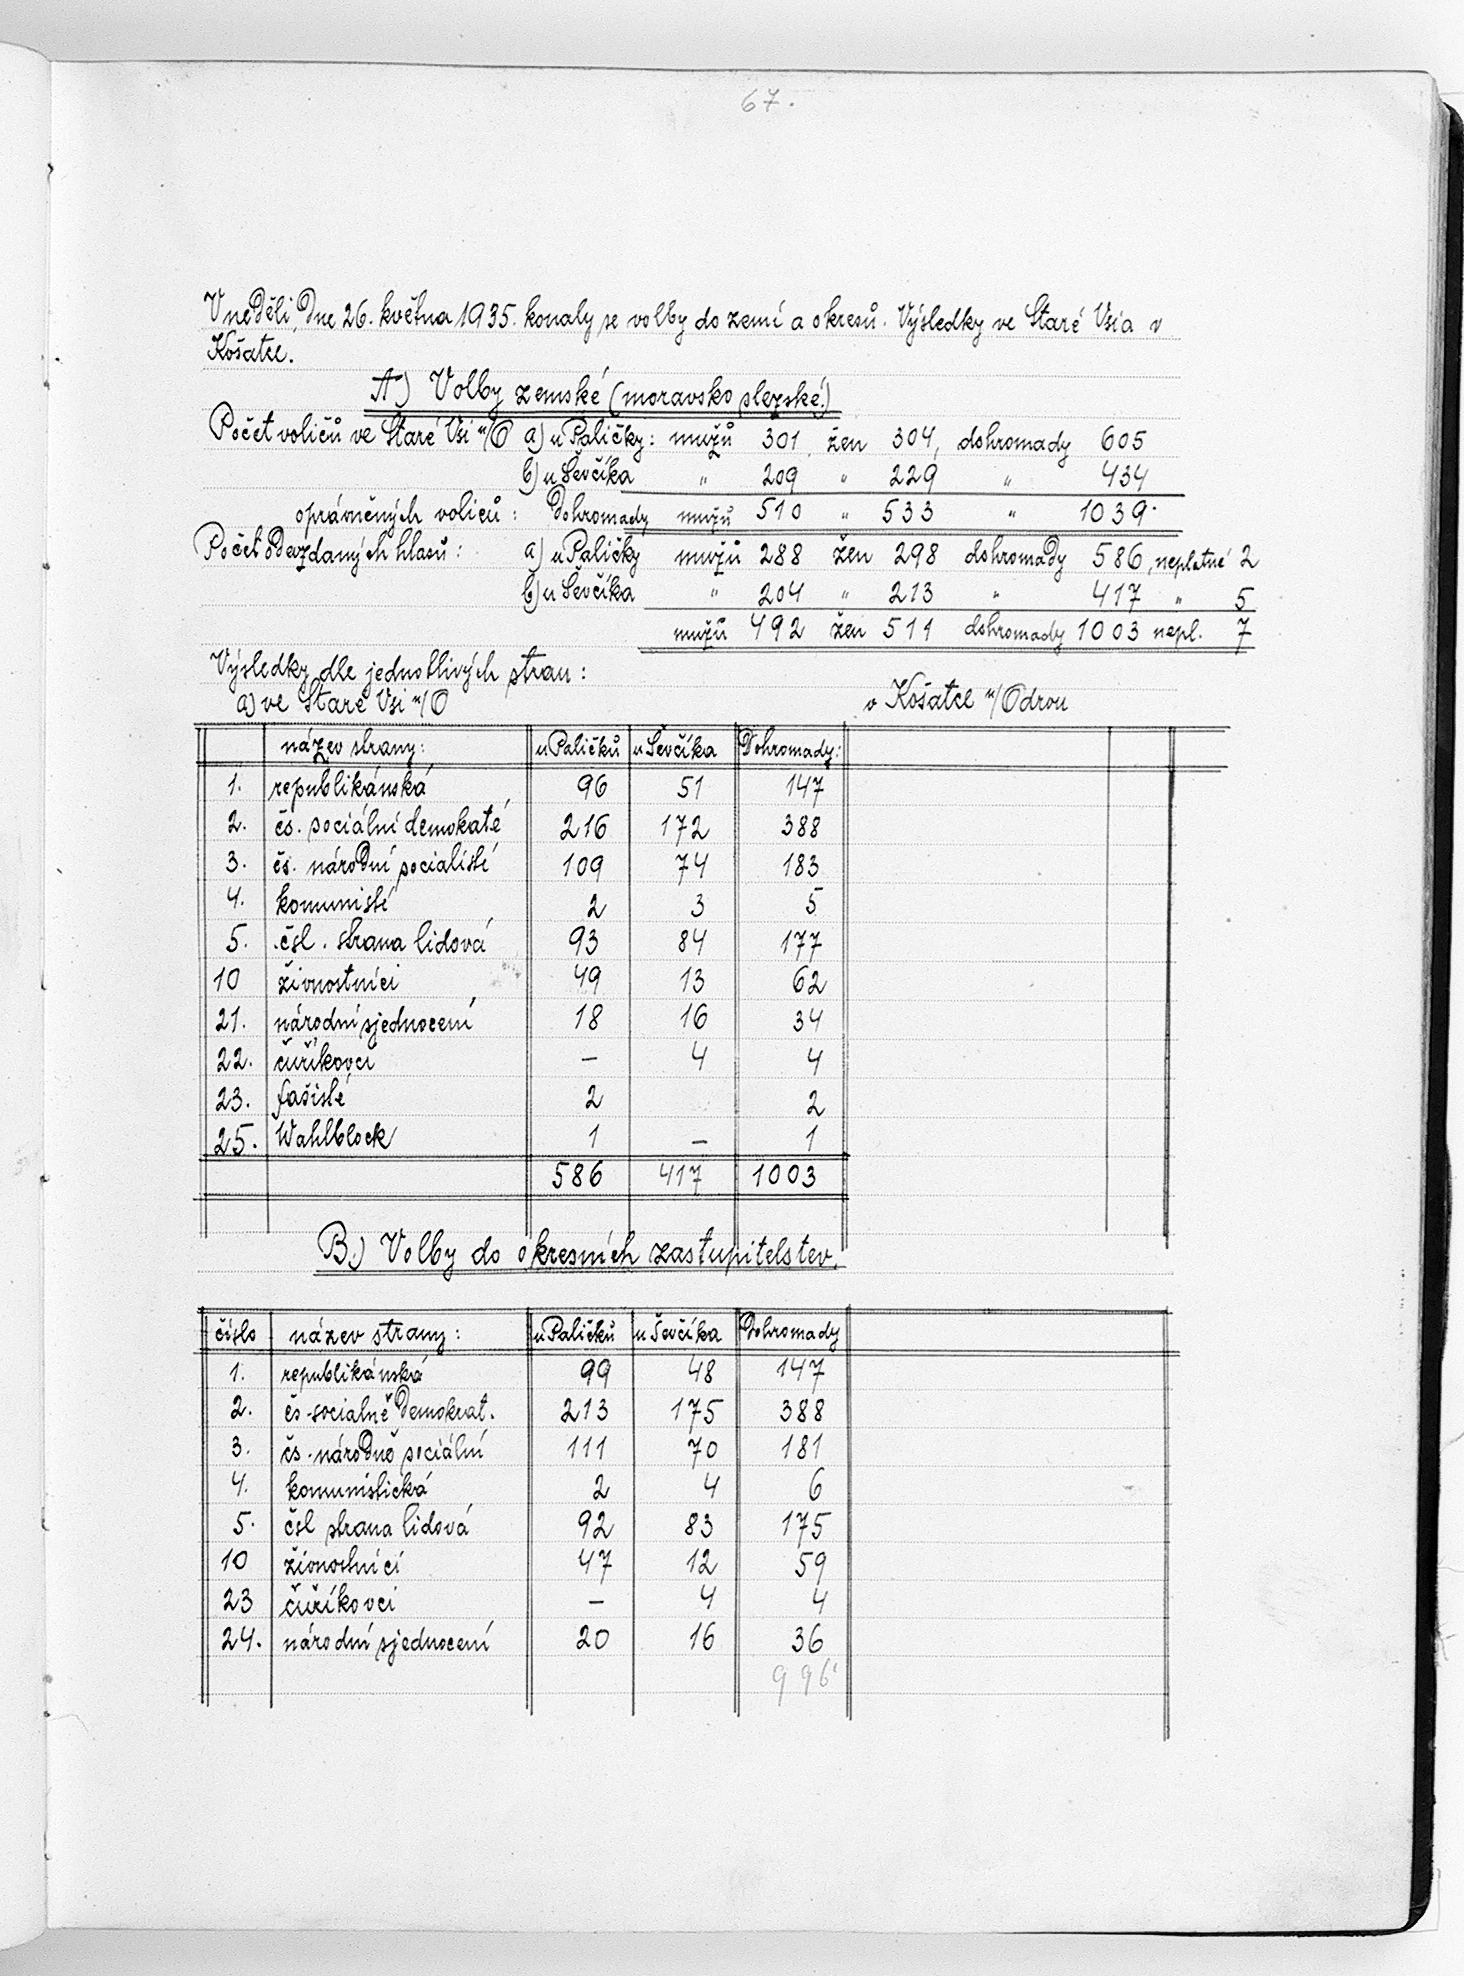 67.
V neděli, dne 26. května 1935. konaly se volby do zemí a okresů. Výsledky ve Staré Vsi a v
Košatce.
A) Volby zemské (moravsko slezské.)
Počet voličů ve Staré Vsi n/O a) u Paličky: mužů 301, žen 304, dohromady 605
b) u Ševčíka " 209 " 229 " 434
oprávněných voličů: Dohromady mužů 510 " 533 " 1039.
Počet odevzdaných hlasů: a) u Paličky mužů 288 žen 298 dohromady 586, neplatné 2
b) u Ševčíka " 204 " 213 " 417 " 5
mužů 492 žen 511 dohromady 1003 nepl. 7
Výsledky dle jednotlivých stran:
a) ve Staré Vsi n/O v Košatce n/Odrou
název strany: u Paličků u Ševčíka Dohromady:
1. republikánská 96 51 147
2. čs. sociální demokaté 216 172 388
3. čs. národní socialisté 109 74 183
4. komunisté 2 3 5
5. čsl. strana lidová 93 84 177
10 živnostníci 49 13 62
21. národní sjednocení 18 16 34
22. čuříkovci – 4 4
23. fašisté 2 2
25. Wahlblock 1 – 1
586 417 1003
B.) Volby do okresních zastupitelstev.
číslo název strany: u Paličků u Ševčíka Dohromady
1. republikánská 99 48 147
2. čs. socialně demokrat. 213 175 388
3. čs. národně sociální 111 70 181
4. komunistická 2 4 6
5. čsl strana lidová 92 83 175
10 živnostníci 47 12 59
23 čuříkovci – 4 4
24. národní sjednocení 20 16 36
996